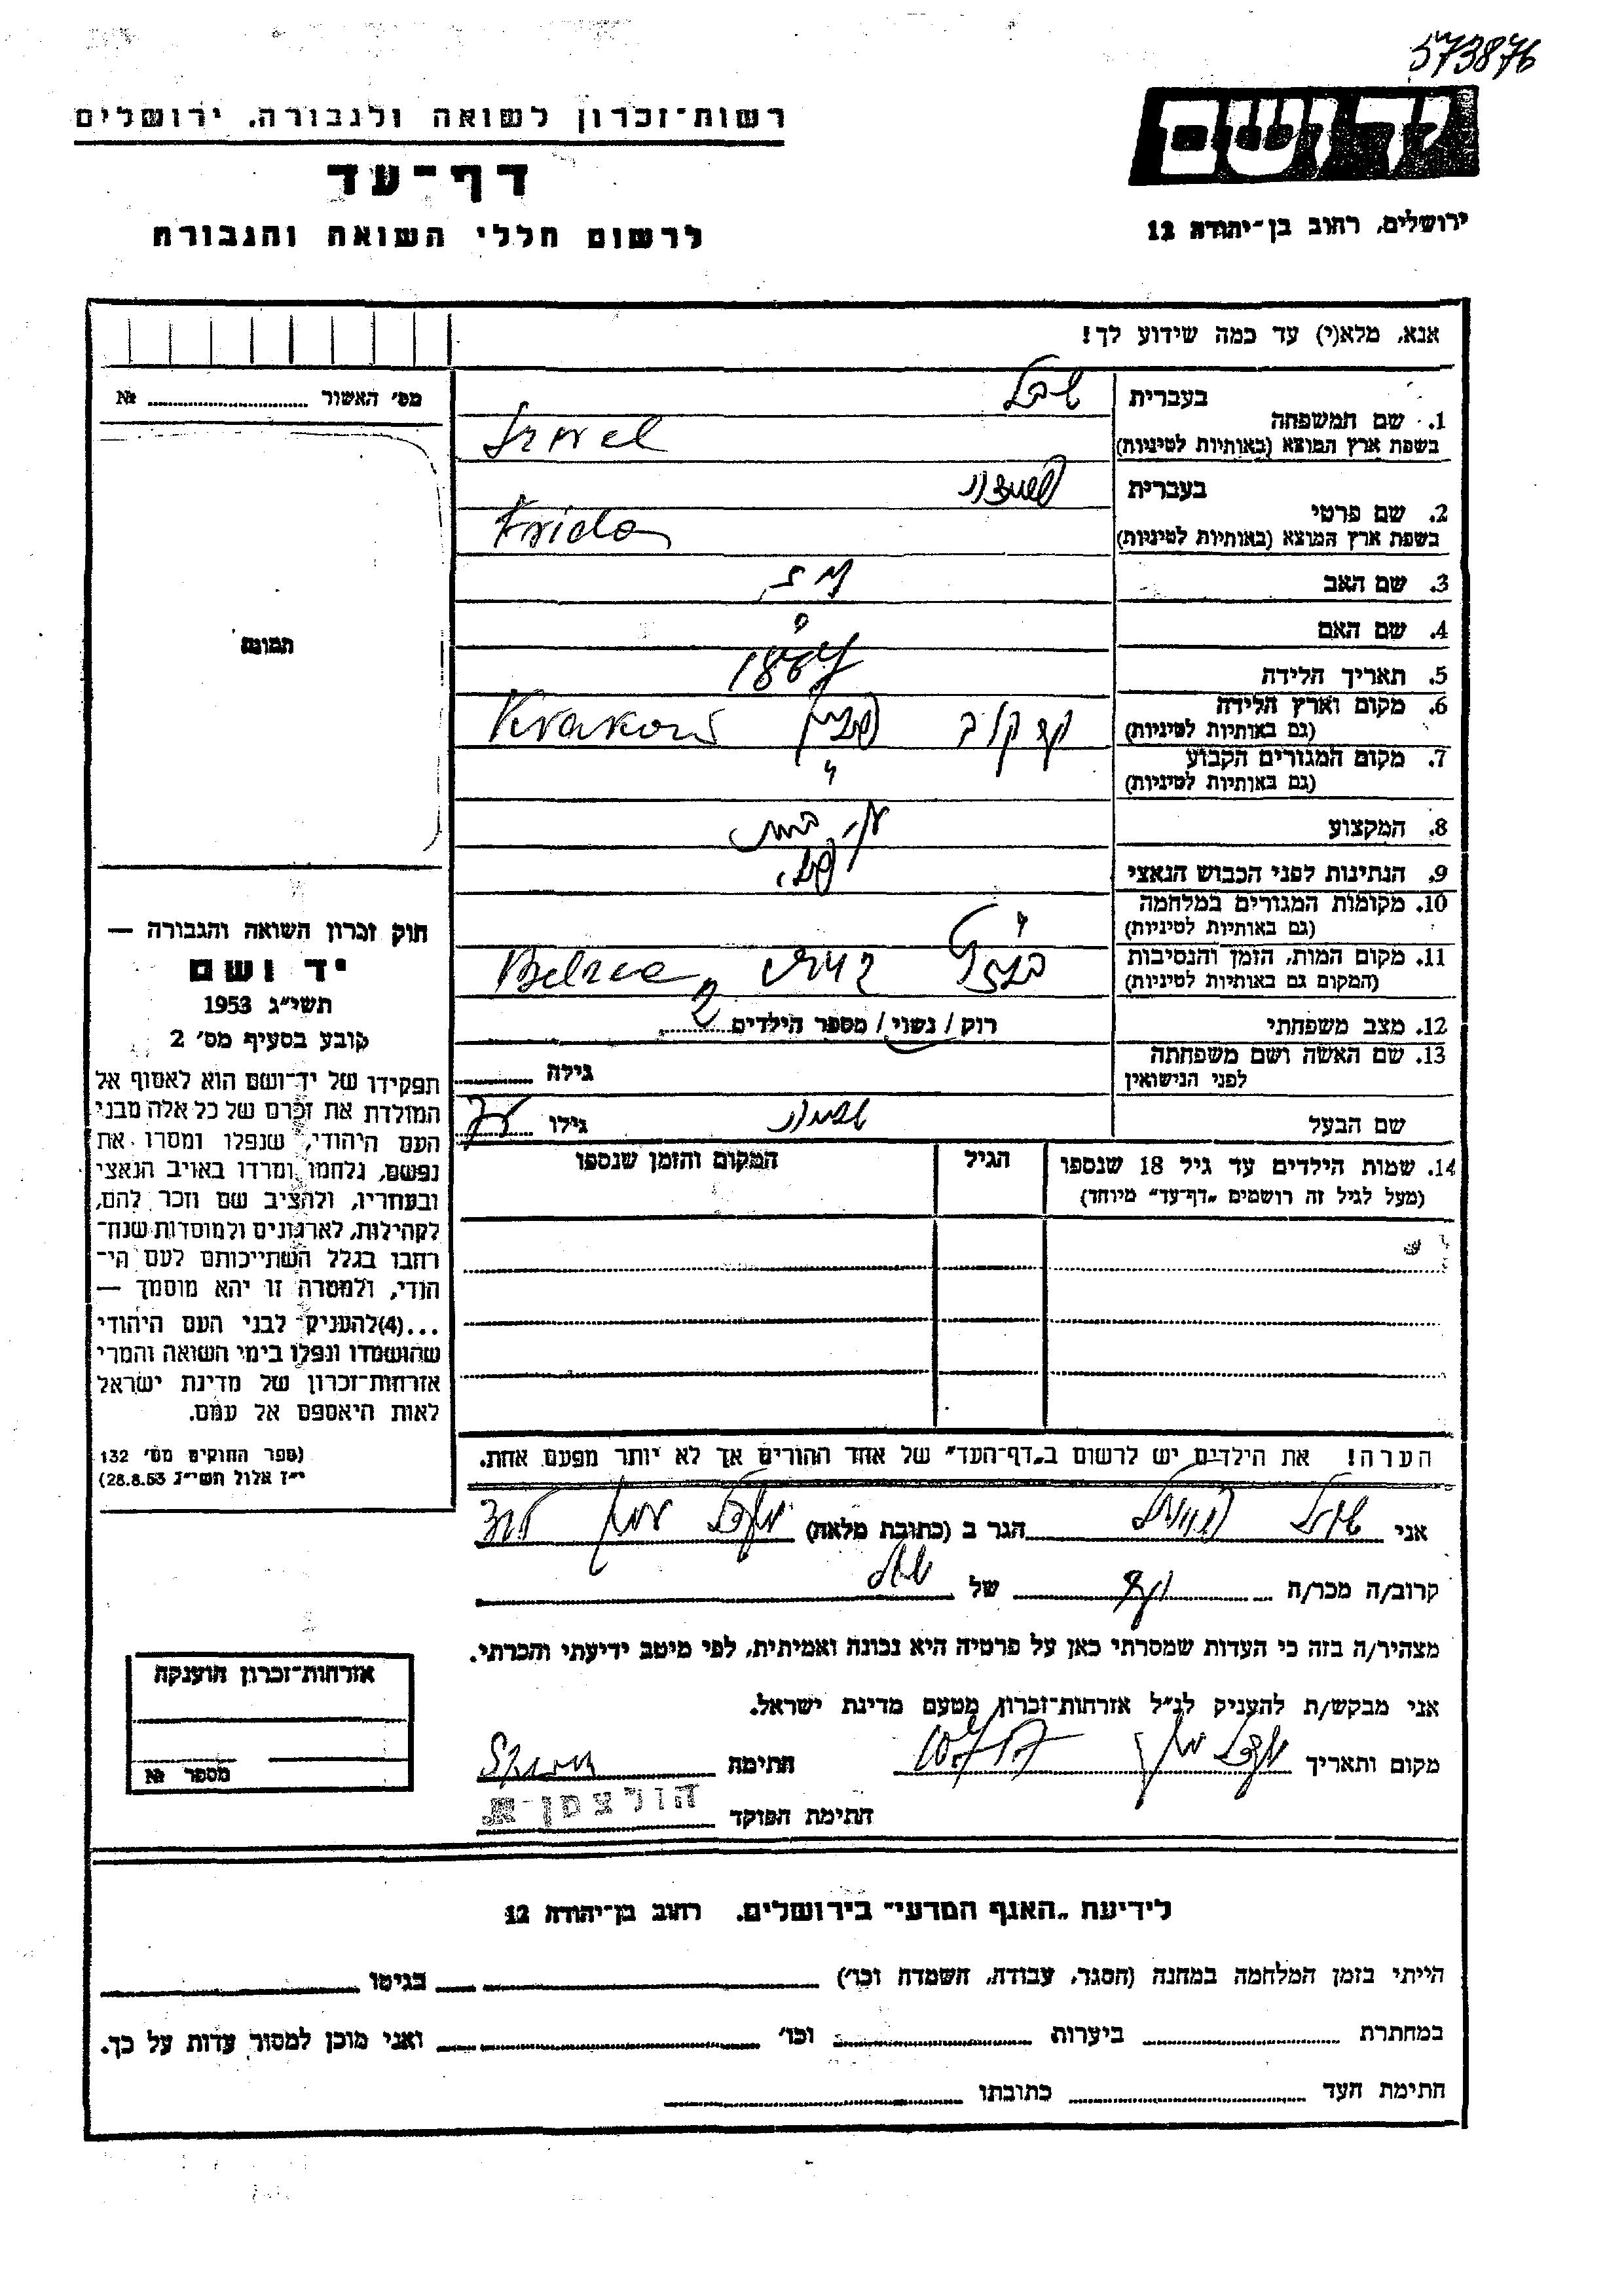 573876
רשות־זכרון לשואה ולגבורה, ירושלים
יד ושם
דף־עד
לרשום חללי השואה והגבורה
ירושלים, רחוב בן־יהודה 12
אנא, מלא(י) עד כמה שידוע לך!
מס׳ האשור № 
בעברית
1. שם המשפחה
בשפת ארץ המוצא (באותיות לטיניות)
בעברית
2. שם פרטי Frida
בשפת ארץ המוצא (באותיות לטיניות)
3. שם האב
4. שם האם ?
תמונה
5. תאריך הלידה
6. מקום וארץ הלידה קרקוב פולין Krakow
(גם באותיות לטיניות)
7. מקום המגורים הקבוע
(גם באותיות לטיניות)
8. המקצוע עק. בית
9. הנתינות לפני הכבוש הנאצי פול.
10. מקומות המגורים במלחמה
(גם באותיות לטיניות)
11. מקום המות, הזמן והנסיבות Belzec
(המקום גם באותיות לטיניות)
12. מצב משפחתי רוק / נשוי / מספר הילדים 2
13. שם האשה ושם משפחתה גילה
לפני הנישואין
שם הבעל גילו
14. שמות הילדים עד גיל 18 שנספו הגיל המקום והזמן שנספו
(מעל לגיל זה רושמים „דף־עד” מיוחד)
חוק זכרון השואה והגבורה —
יד ושם
תשי״ג 1953
קובע בסעיף מס׳ 2
תפקידו של יד־ושם הוא לאסוף אל
המולדת את זכרם של כל אלה מבני
העם היהודי, שנפלו ומסרו את
נפשם, נלחמו ומרדו באויב הנאצי
ובעוזריו, ולהציב שם וזכר להם,
לקהילות, לארגונים ולמוסדות שנח־
רבו בגלל השתייכותם לעם הי־
הודי, ולמטרה זו יהא מוסמך —
...(4)להעניק לבני העם היהודי
שהושמדו ונפלו בימי השואה והמרי
אזרחות־זכרון של מדינת ישראל
לאות היאספם אל עמם.
(ספר החוקים מס׳ 132
י״ז אלול תשי״ג 28.8.53)
הערה! את הילדים יש לרשום ב„דף־העד” של אחד ההורים אך לא יותר מפעם אחת.
אני הגר ב (כתובת מלאה)
קרוב/ה מכר/ה של
מצהיר/ה בזה כי העדות שמסרתי כאן על פרטיה היא נכונה ואמיתית, לפי מיטב ידיעתי והכרתי.
אני מבקש/ת להעניק לנ״ל אזרחות־זכרון מטעם מדינת ישראל.
מקום ותאריך חתימה
חתימת הפוקד הולצמן א.
אזרחות־זכרון הוענקה
מספר №
לידיעת „האגף המדעי” בירושלים, רחוב בן־יהודה 12
הייתי בזמן המלחמה במחנה (הסגר, עבודה, השמדה וכו׳) בגיטו
במחתרת ביערות וכו׳ ואני מוכן למסור עדות על כך.
חתימת העד כתובתו